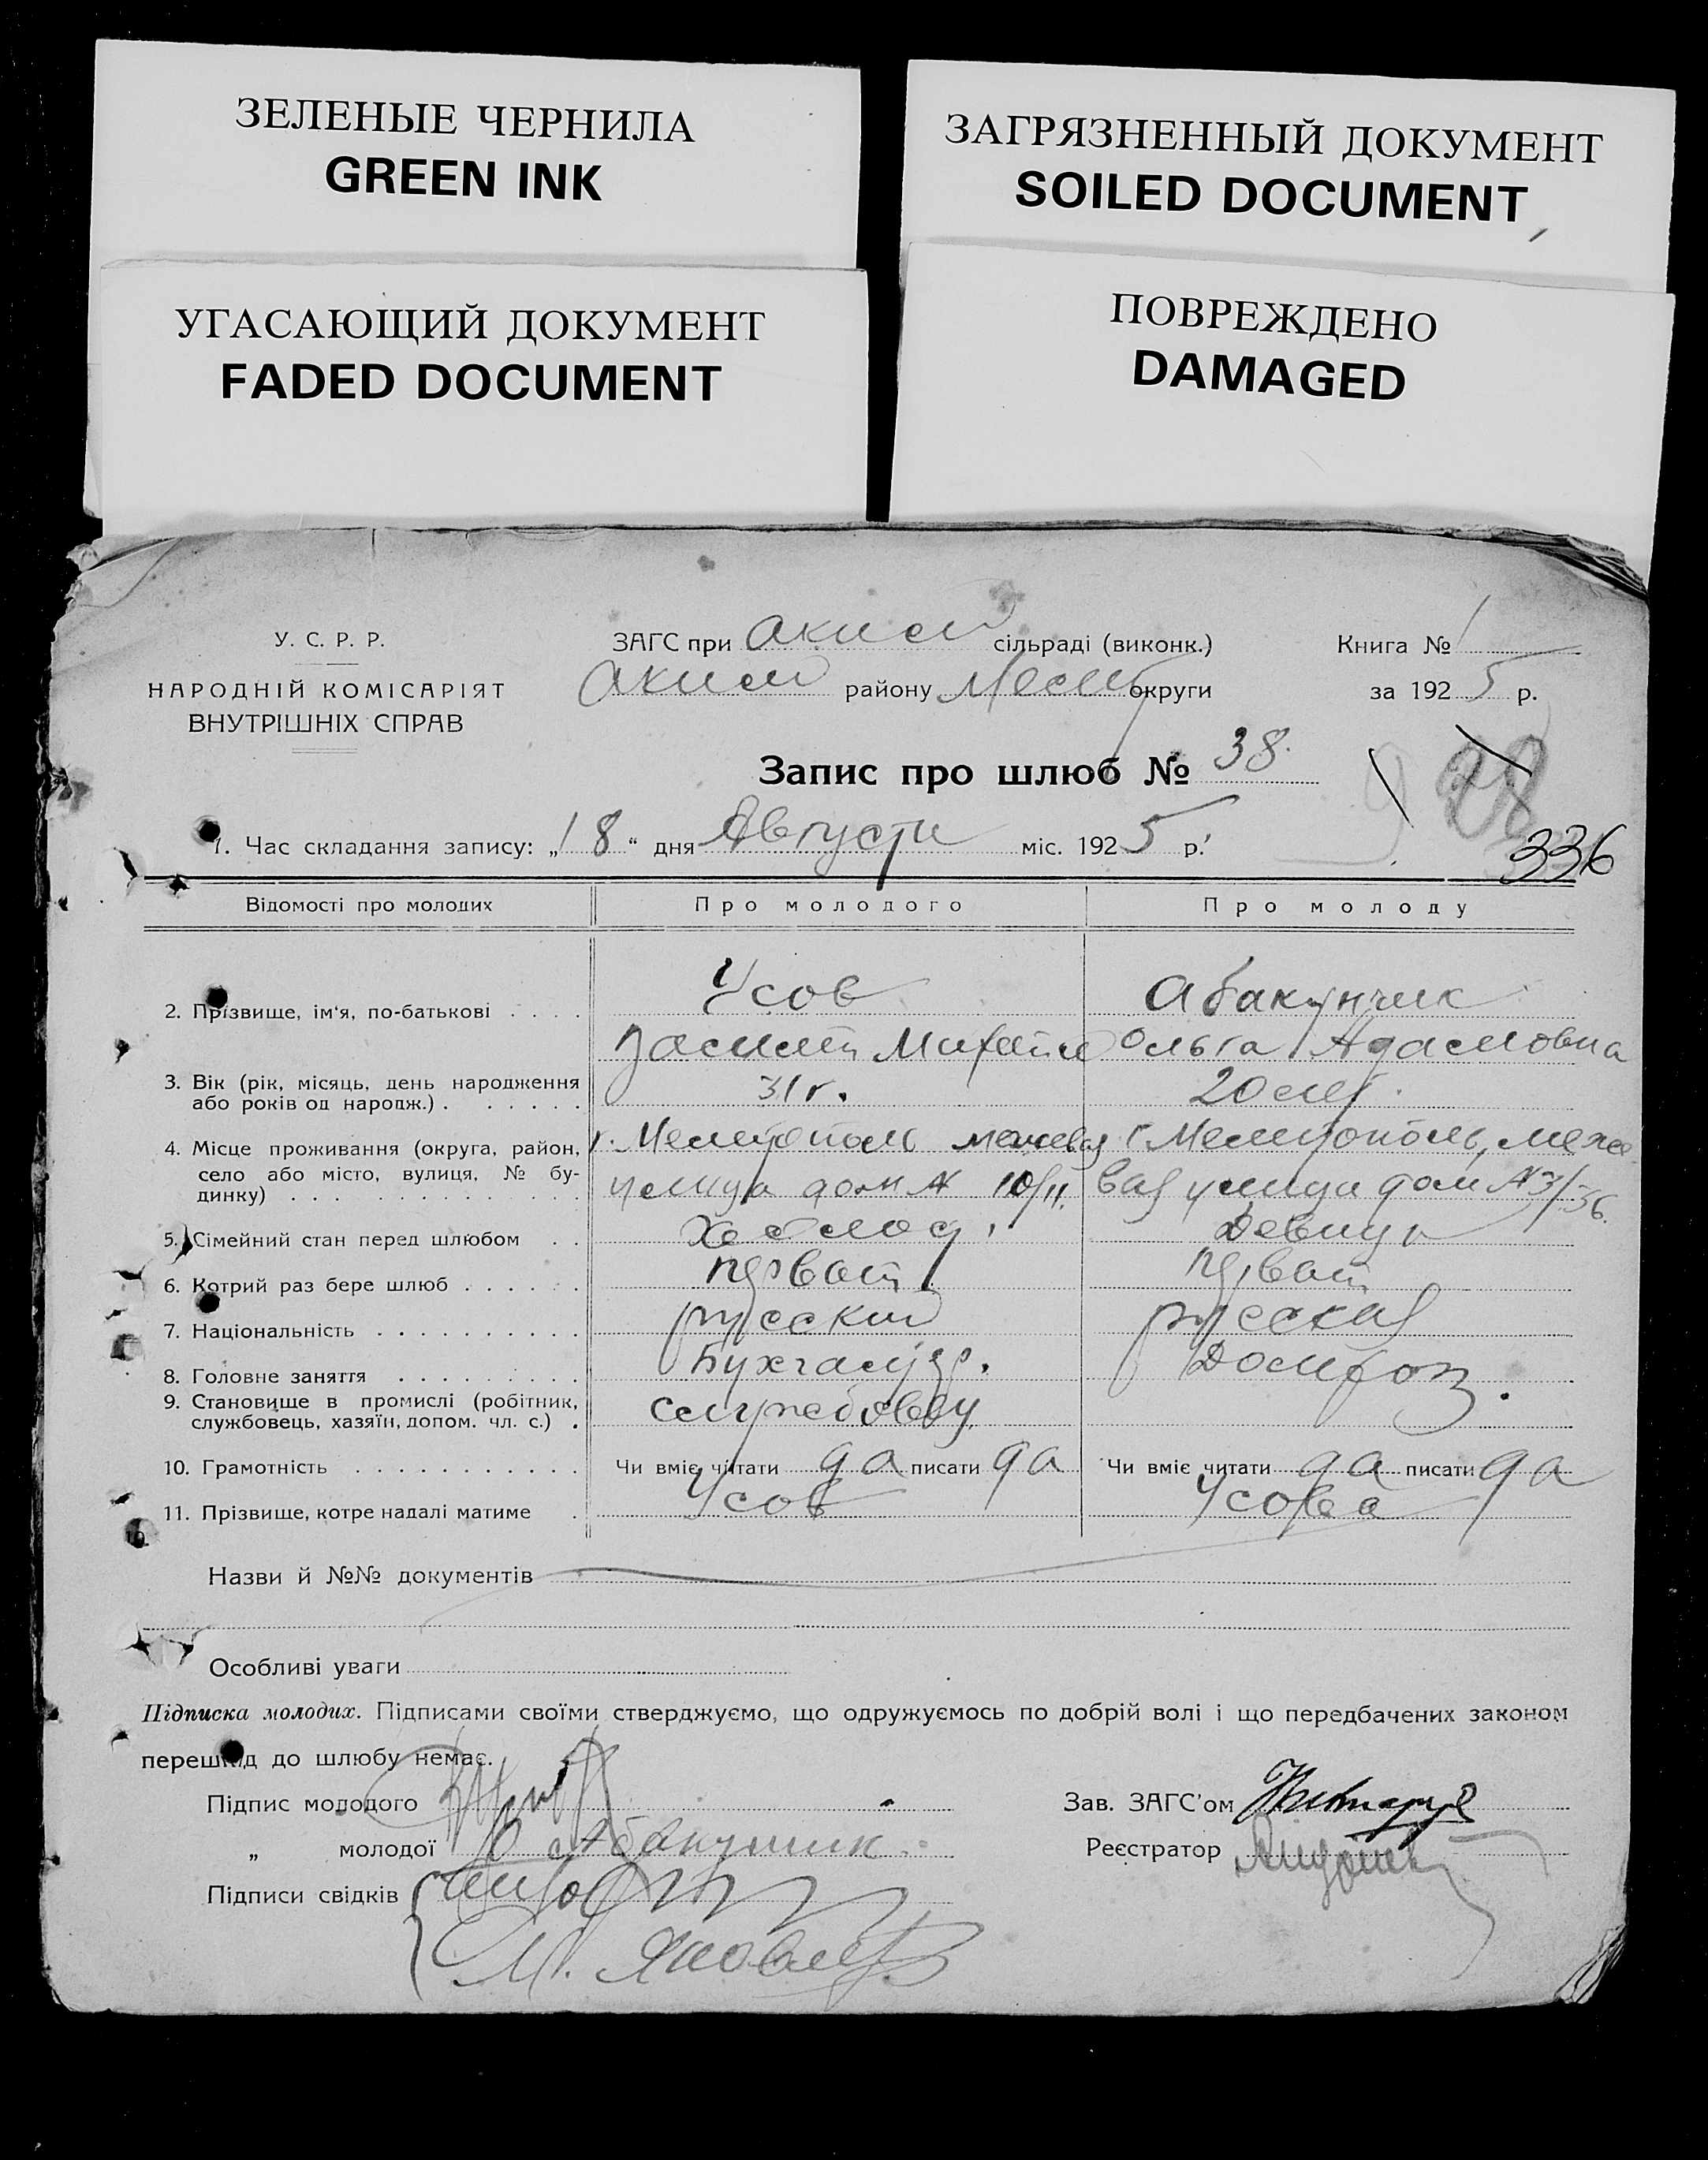 ЗЕЛЕНЫЕ ЧЕРНИЛА
GREEN INK
ЗАГРЯЗНЕННЫЙ ДОКУМЕНТ
SOILED DOCUMENT
УГАСАЮЩИЙ ДОКУМЕНТ
FADED DOCUMENT
ПОВРЕЖДЕНО
DAMAGED
У. С. Р. Р.
НАРОДНІЙ КОМІСАРІЯТ
ВНУТРІШНІХ СПРАВ
ЗАГС при Аким сільраді (виконк.)
Аким району Мелит округи
Книга № 1
за 1925 р.
Запис про шлюб № 38
336
1. Час складання запису: „18“ дня Августа міс. 1925 р.
Відомості про молодих Про молодого Про молоду
2. Прізвище, ім'я, по-батькові Усов Абакунчик
Василий Михайл Ольга Адамовна
3. Вік (рік, місяць, день народження або років од народж.) 31 г. 20 лет.
4. Місце проживання (округа, район, г. Мелитополь межевая г. Мелитополь, меже
село або місто, вулиця, № будинку) улица дом № 10/11. вая улица дом № 31/36.
5. Сімейний стан перед шлюбом Холост Девица
6. Котрий раз бере шлюб первый первый
7. Національність русский русская
8. Головне заняття Бухгалтер. Домхоз.
9. Становище в промислі (робітник,
службовець, хазяїн, допом. чл. с.)
10. Грамотність Чи вміє читати да писати да Чи вміє читати да писати да
11. Прізвище, котре надалі матиме Усов Усова
Назви й №№ документів
Особливі уваги
Підписка молодих. Підписами своїми стверджуємо, що одружуємось по добрій волі і що передбачених законом
перешкод до шлюбу немає.
Підпис молодого
„ молодої О Абакунчик
Підписи свідків
М. Яковлев
Зав. ЗАГС'ом
Реєстратор